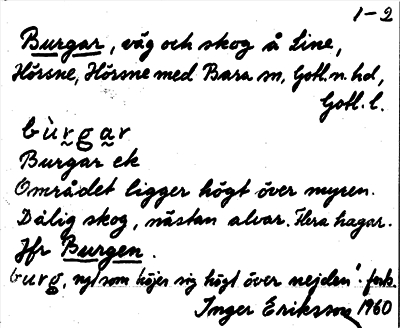 1-2
Burgar, väg och skog å Line,
Hörsne, Hörsne med Bara sn, Gotl. n. hd,
Gotl. l.
bùrgar
Burgar ek
Området ligger högt över myren.
Dålig skog, nästan alvar. Flera hagar.
Jfr Burgen.
burg, "ngt som höjer sig högt över nejden".
Inger Eriksson 1960